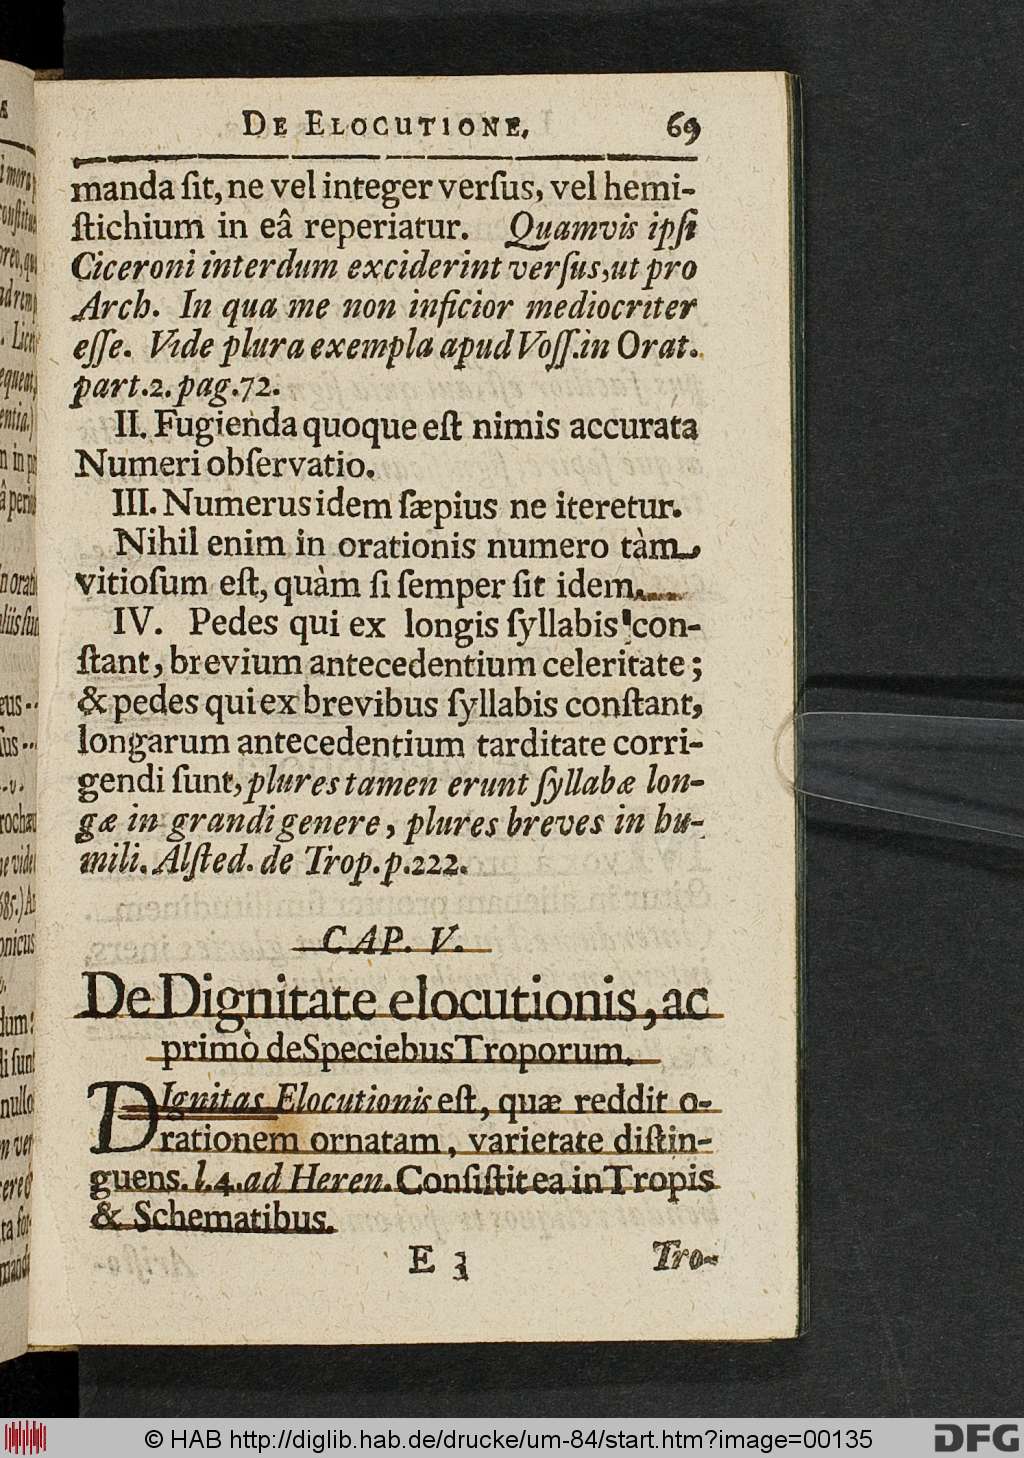 DE ELOCUTIONE. 69
manda ſit, ne vel integer verſus, vel hemi-
ſtichium in eâ reperiatur. Quamvis ipſi
Ciceroni interdum exciderint verſus, ut pro
Arch. In qua me non inficior mediocriter
eſſe. Vide plura exempla apud Voſſ. in Orat.
part. 2. pag. 72.
II. Fugienda quoque eſt nimis accurata
Numeri obſervatio.
III. Numerus idem ſæpius ne iteretur.
Nihil enim in orationis numero tàm
vitioſum eſt, quàm ſi ſemper ſit idem.
IV. Pedes qui ex longis ſyllabis con-
ſtant, brevium antecedentium celeritate;
& pedes qui ex brevibus ſyllabis conſtant,
longarum antecedentium tarditate corri-
gendi ſunt, plures tamen erunt ſyllabæ lon-
gæ in grandi genere, plures breves in hu-
mili. Alſted. de Trop. p. 222.
CAP. V.
De Dignitate elocutionis, ac
primò de Speciebus Troporum.
DIgnitas Elocutionis eſt, quæ reddit o-
rationem ornatam, varietate diſtin-
guens. l. 4. ad Heren. Conſiſtit ea in Tropis
& Schematibus.
E 3 Tro-
© HAB http://diglib.hab.de/drucke/um-84/start.htm?image=00135
DFG